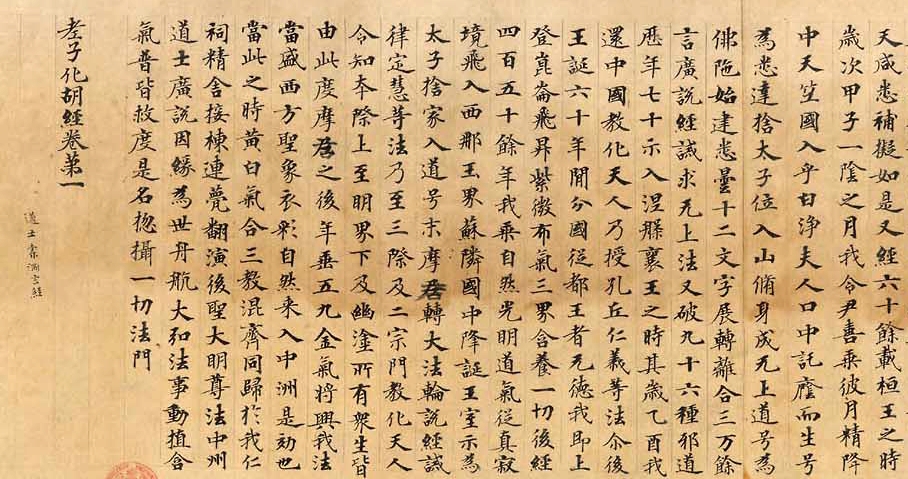 天咸悉補擬如是又經六十餘載桓王之時
歲次甲子一陰之月我令尹喜乗彼月精降
中天竺國入乎白淨夫人口中託廕而生号
為悉達捨太子位入山脩身成无上道号為
佛陁始建悉曇十二文字展轉離合三万餘
言廣說經誡求无上法又破九十六種邪道
歷年七十示入涅槃襄王之時其歲乙酉我
還中國教化天人乃授孔丘仁義等法尒後
王誕六十年間分國從都王者无德我即上
登崑崙飛昇紫微布氣三界含養一切後經
四百五十餘年我乘自然光明道氣從真寂
境飛入西那玉界蘇隣國中降誕王室示為
太子捨家入道号末摩尼轉大法輪說經誡
律定慧等法乃至三際及二宗門教化天人
令知本際上至明界下及幽塗所有衆生皆
由此度摩尼之後年垂五九金氣將興我法
當盛西方聖象衣彩自然来入中洲是効也
當此之時黄白氣合三教混齊同歸於我仁
祠精舍接棟連甍翻演後聖大明尊法中州
道士廣說因緣為世舟航大弘法事動植含
氣普皆救度是名揔攝一切法門
老子化胡經卷第一
道士索洞玄經